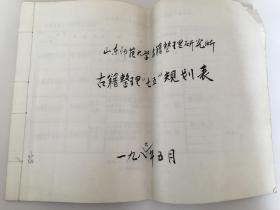 山东师范大学古籍整理研究所
古籍整理“七五”规划表
一九八六年五月